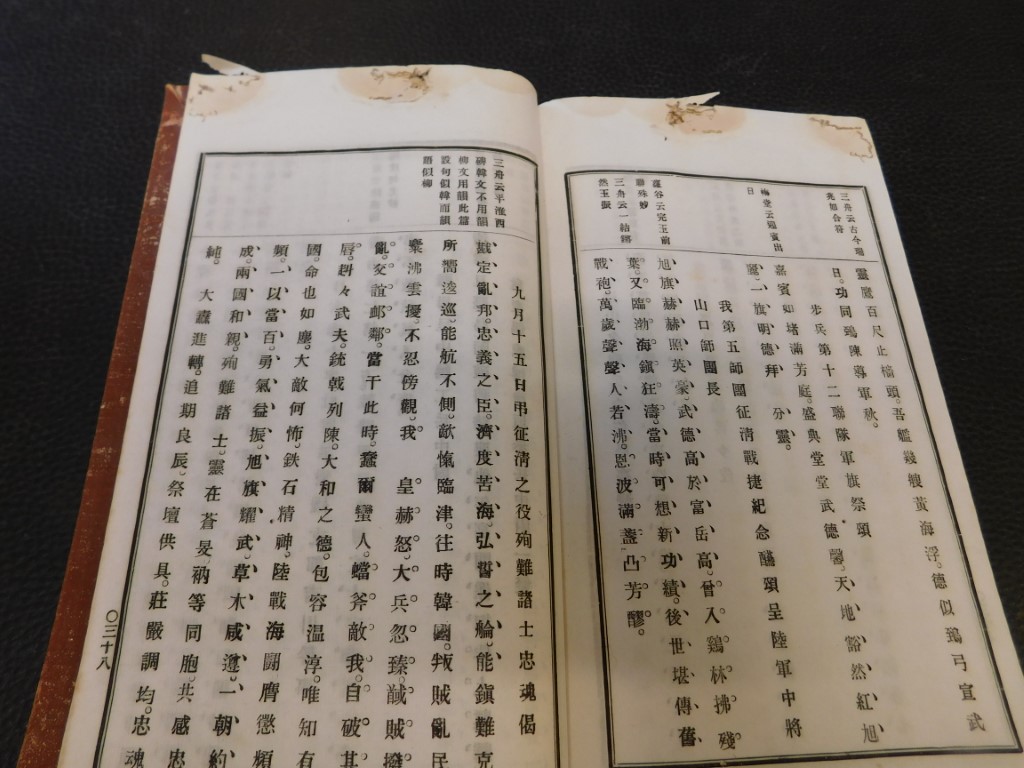 三舟云古今鴻
兆如合符
梅堂云福賓出
日
蘆谷云完玉前
聯殊妙
三舟云一結鏘
然玉振
靈鷹百尺止檣頭。吾艦幾艘黃海浮。德似鵄弓宣武
日。功同鵄陳尊軍秋。
步兵第十二聯隊軍旗祭頌
嘉賓如堵滿芳庭。盛典堂堂武德馨。天地豁然紅旭
麗。二旗明德拜分靈。
我第五師團征清戰捷紀念醼頌呈陸軍中將
山口師團長
旭旗赫赫照英豪。武德高於富岳高。曾入鷄林拂殘
葉。又臨渤海鎭狂濤。當時可想新功績。後世堪傳舊
戰袍。萬歲聲聲人若沸。恩波滿盞凸芳醪。
三舟云平淮西
碑韓文不用韻
柳文用韻此篇
設句似韓而韻
語似柳
九月十五日弔征清之役殉難諸士忠魂偈
戡定亂邦。忠義之臣。濟度苦海。弘誓之輪。能鎭難克
所嚮逡巡。能航不側。歆愾臨津。往時韓國。叛賊亂民
棄沸雲擾。不忍傍觀。我皇赫怒。大兵忽臻。馘賊撥
亂。交誼鄰鄰。當干此時。蠢爾蠻人。蟷斧敵我。自破其
脣。赳々武夫。銃戟列陳。大和之德。包容温淳。唯知有
國。命也如塵。大敵何怖。鉄石精神。陸戰海鬪。膺懲頻
頻。一以當百。勇氣益振。旭旗耀武。草木咸遵。一朝約
成。兩國和親。殉難諸士。靈在蒼旻。衲等同胞。共感忠
純。大纛進轉。追期良辰。祭壇供具。莊嚴調均。忠魂
〇三十八